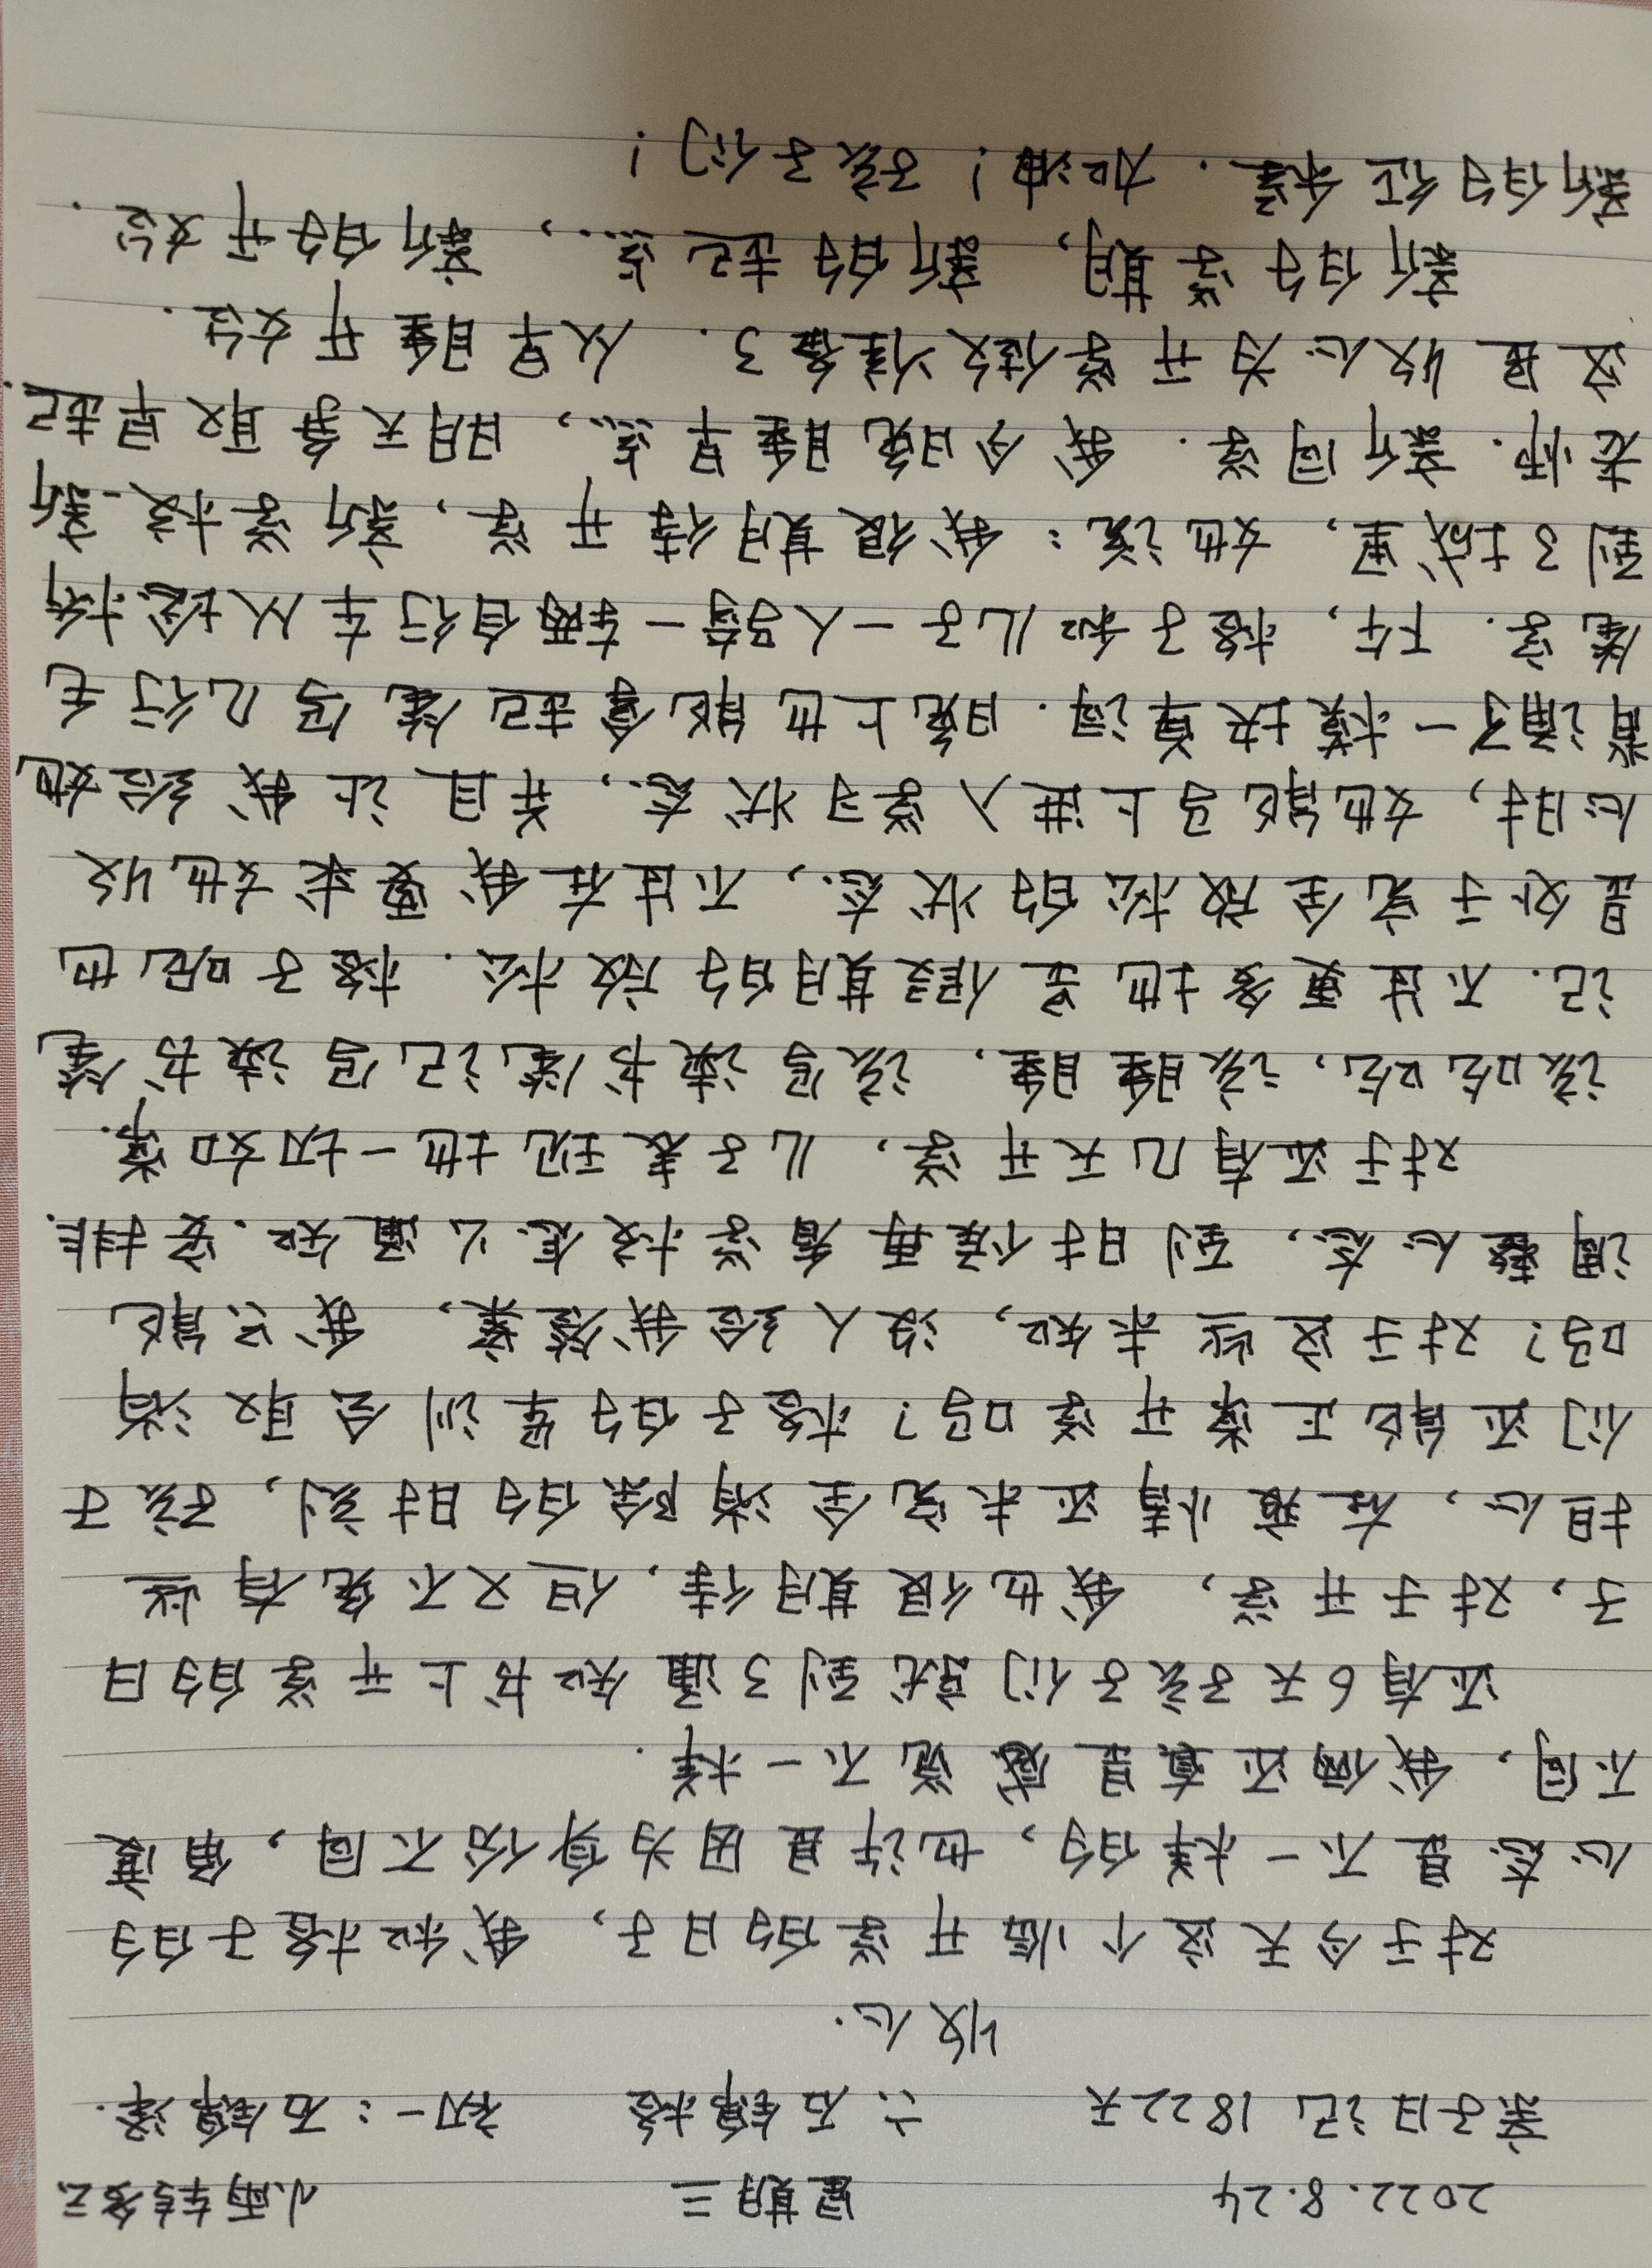 2022.8.24 星期三 小雨转多云
亲子日记 1822天 六:石锦榕 初一:石锦泽.
收心.
对于今天这个临开学的日子,我和榕子的
心态是不一样的,也许是因为身份不同,角度
不同,我俩还真是感觉不一样.
还有6天孩子们就到了通知书上开学的日
子,对于开学,我也很期待,但又不免有些
担心,在疫情还未完全消除的时刻,孩子
们还能正常开学吗?榕子的军训会取消
吗?对于这些未知,没人给我答案,我只能
调整心态,到时候再看学校怎么通知.安排.
对于还有几天开学,儿子表现地一切如常.
该吃吃,该睡睡,该写读书笔记写读书笔
记.不过更多地是假期的放松.榕子呢也
是处于完全放松的状态,不过在我要求她收
心时,她能马上进入学习状态,并且让我给她
背诵了一模块单词.晚上也能拿起笔写几行毛
笔字.下午,榕子和儿子一人骑一辆自行车从桥
到了城里,她说:我很期待开学,新学校.新
老师.新同学.我今晚睡早点,明天争取早起.
这是收心为开学做准备了.从早睡开始.
新的学期,新的起点,新的开始.
新的征途.加油!孩子们!